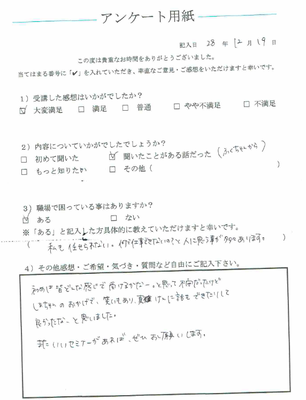 アンケート用紙
記入日 28 年 12 月 19 日
この度は貴重なお時間をありがとうございました。
当てはまる番号に「✓」を入れていただき、率直なご意見・ご感想をいただけますと幸いです。
1）受講した感想はいかがでしたか？
☑ 大変満足 □ 満足 □ 普通 □ やや不満足 □ 不満足
2）内容についていかがでしたでしょうか？
□ 初めて聞いた ☑ 聞いたことがある話だった（ふくちゃんから）
□ もっと知りたい □ その他（ ）
3）職場で困っている事はありますか？
☑ ある □ ない
※「ある」と記入した方具体的に教えていただけますと幸いです。
（ 私も 任せられない。 人に 事が 多々あります。）
4）その他感想・ご希望・気づき・質問など自由にご記入下さい。
初めは皆どんな感じで 受けるかなー。と思って不安だったけど
しまちゃんの おかげで、笑いもあり、真剣 に話も できたりして
良かったなーと思いました。
またいいセミナーがあれば、ぜひ お願いします。